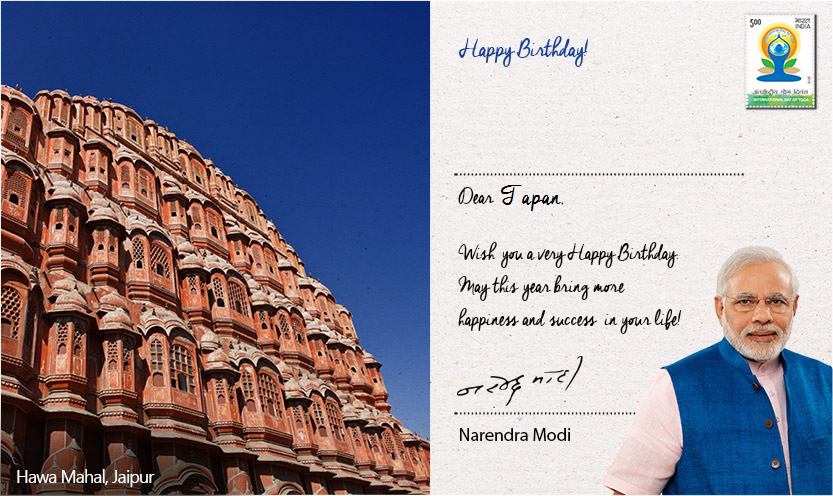 Happy Birthday!
5.00
भारत
INDIA
अंतर्राष्ट्रीय योग दिवस
INTERNATIONAL DAY OF YOGA
Dear Tapan,
Wish you a very Happy Birthday.
May this year bring more
happiness and success in your life!
नरेन्द्र मोदी
Narendra Modi
Hawa Mahal, Jaipur